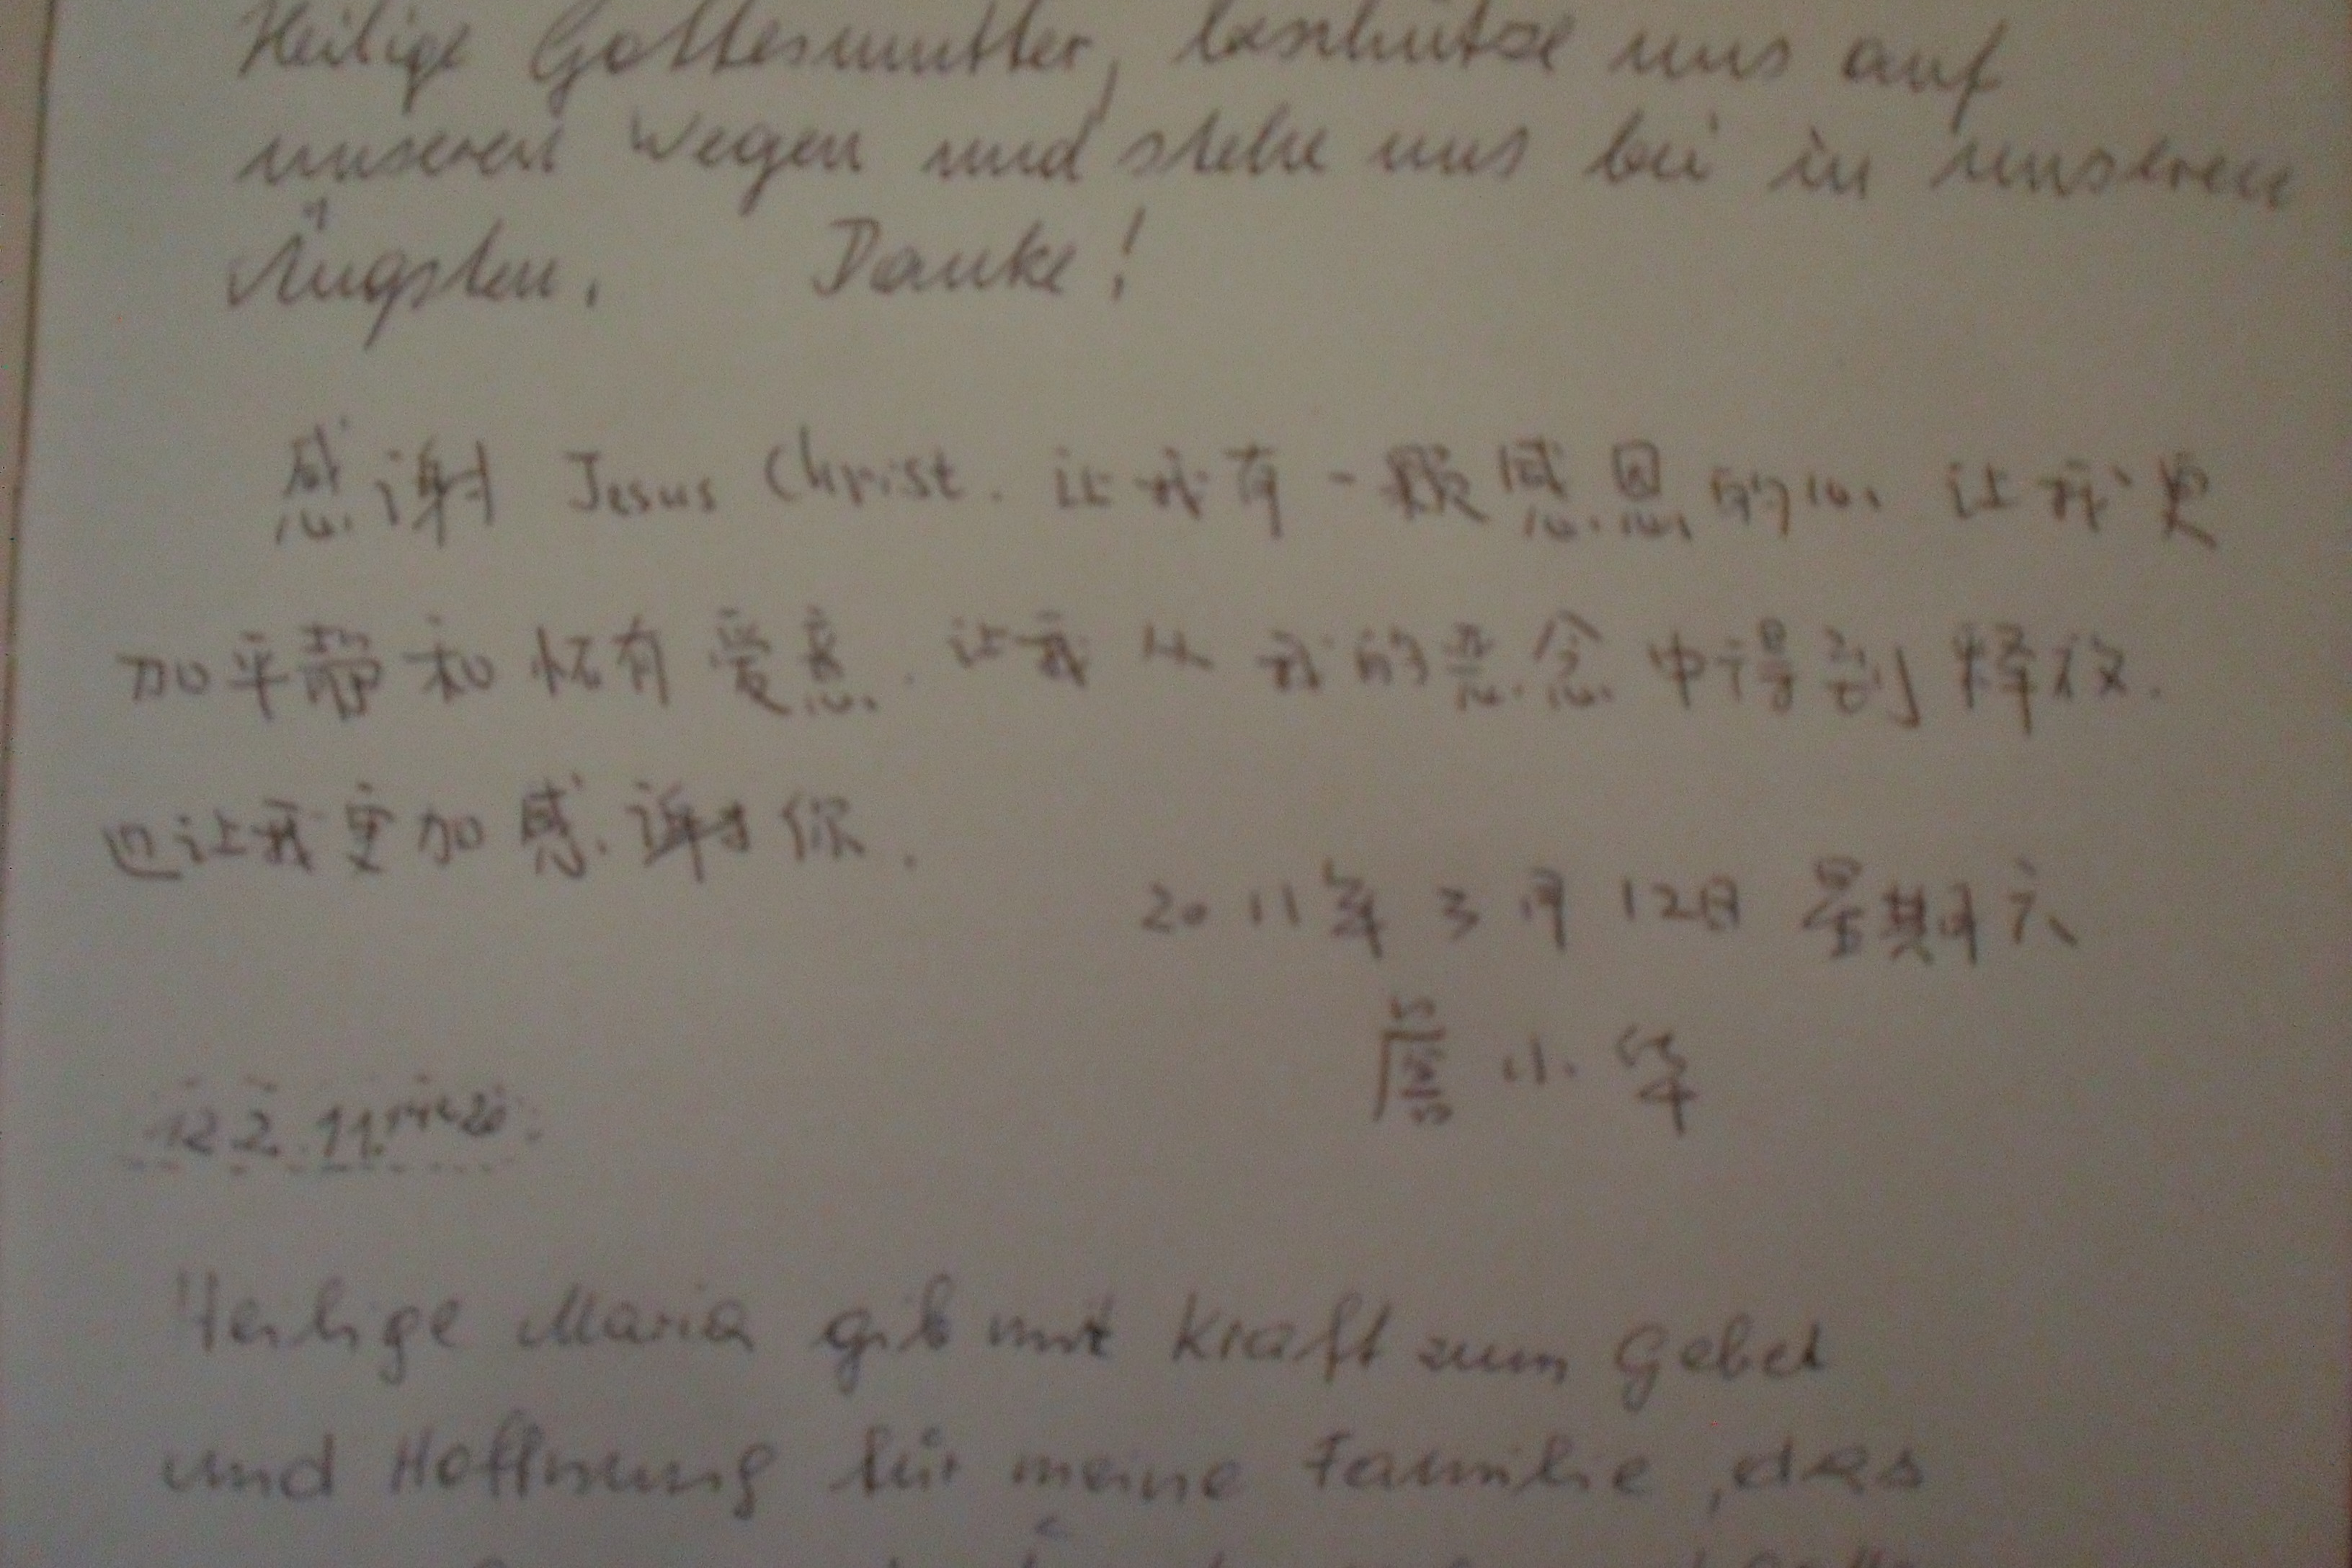 Heilige Gottesmutter, beschütze uns auf
unseren Wegen und stehe uns bei in unseren
Ängsten. Danke!
感谢 Jesus Christ. 让我有一颗感恩的心、让我更
加平静和怀有爱意. 让我从我的恶念中得到释放.
也让我更加感谢你.
2011年3月12日 星期六
詹小华
Heilige Maria gib mit Kraft zum Gebet
und Hoffnung für meine Familie, das